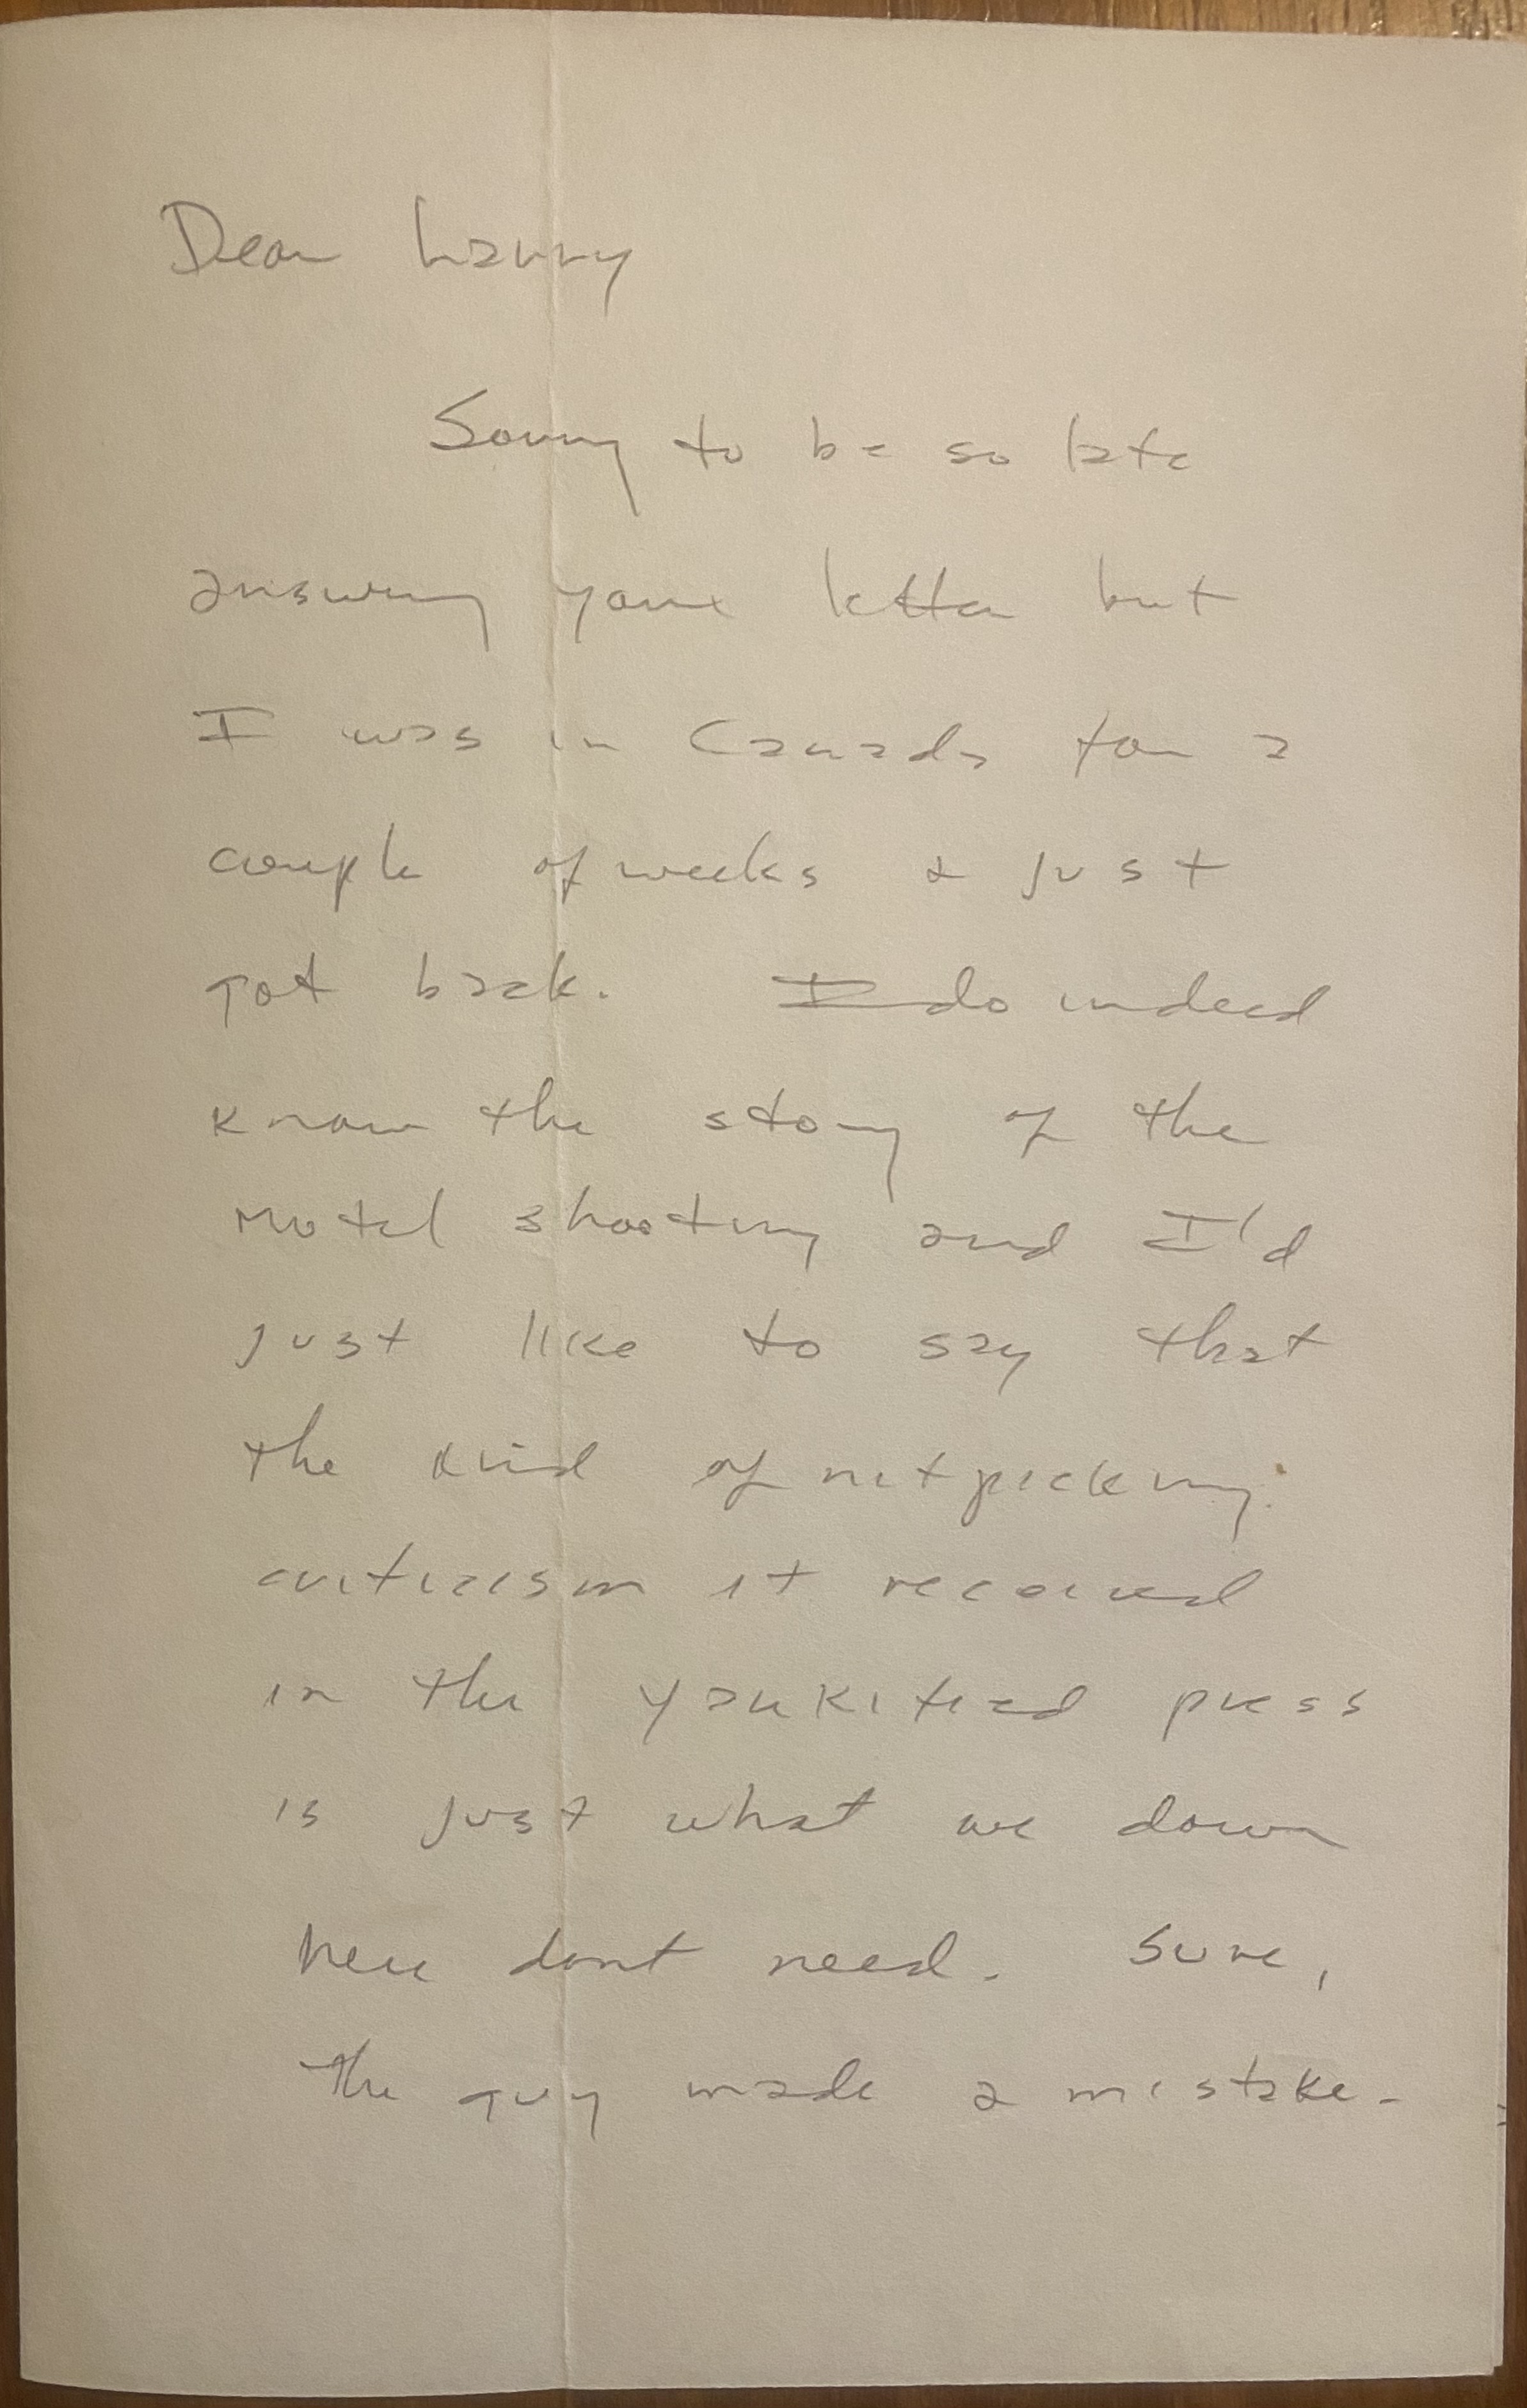 Dear Larry
Sorry to be so late
answering your letter but
I was in Canada for a
couple of weeks & just
got back. I do indeed
know the story of the
motel shooting and I'd
just like to say that
the kind of nitpicking
criticism it received
in the yankified press
is just what we down
here dont need. Sure,
the guy made a mistake.